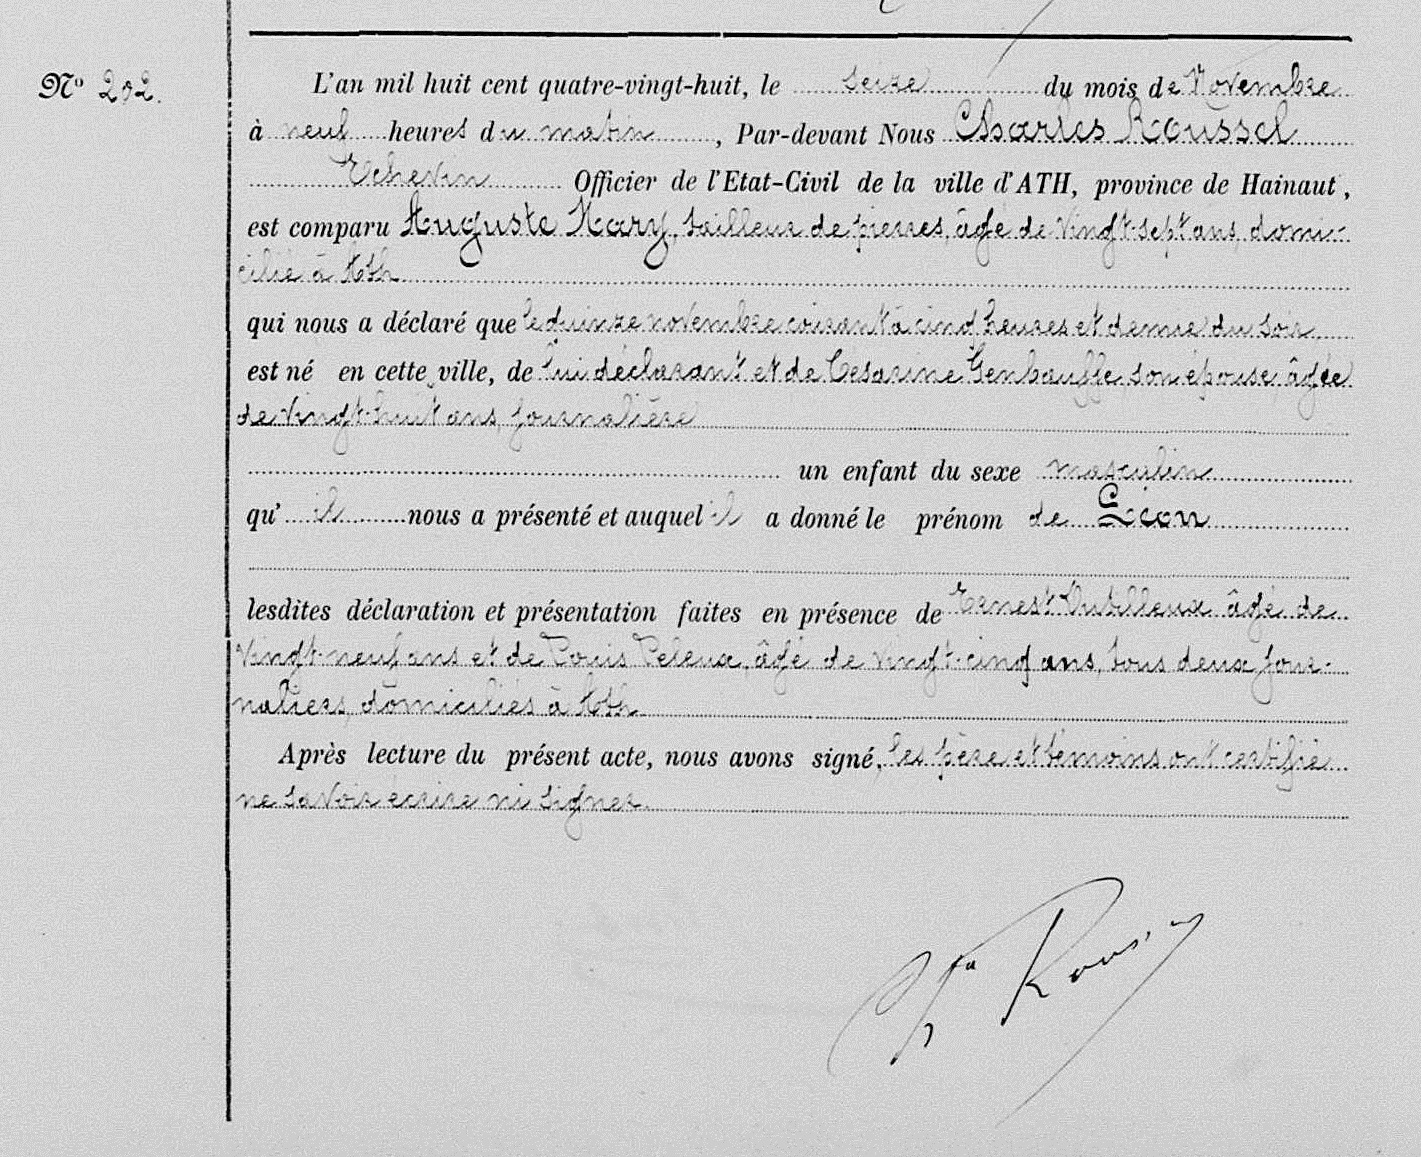 N° 202.
L'an mil huit cent quatre-vingt-huit, le seize du mois de Novembre
à neuf heures du matin, Par-devant Nous Charles Roussel
Echevin Officier de l'Etat-Civil de la ville d'ATH, province de Hainaut,
est comparu Auguste Hary, tailleur de pierres, âgé de vingt-sept ans, domi-
cilié à Ath
qui nous a déclaré que le quinze novembre courant à cinq heures et demie du soir,
est né en cette ville, de lui déclarant et de Césarine Genbauffe, son épouse, âgée
de vingt-huit ans, journalière
un enfant du sexe masculin
qu'il nous a présenté et auquel il a donné le prénom de Léon
lesdites déclaration et présentation faites en présence de Ernest âgé de
vingt-neuf ans et de Louis Leleux, âgé de vingt-cinq ans, tous deux jour-
naliers, domiciliés à Ath
Après lecture du présent acte, nous avons signé, les père et témoins ont certifié
ne savoir écrire ni signer.